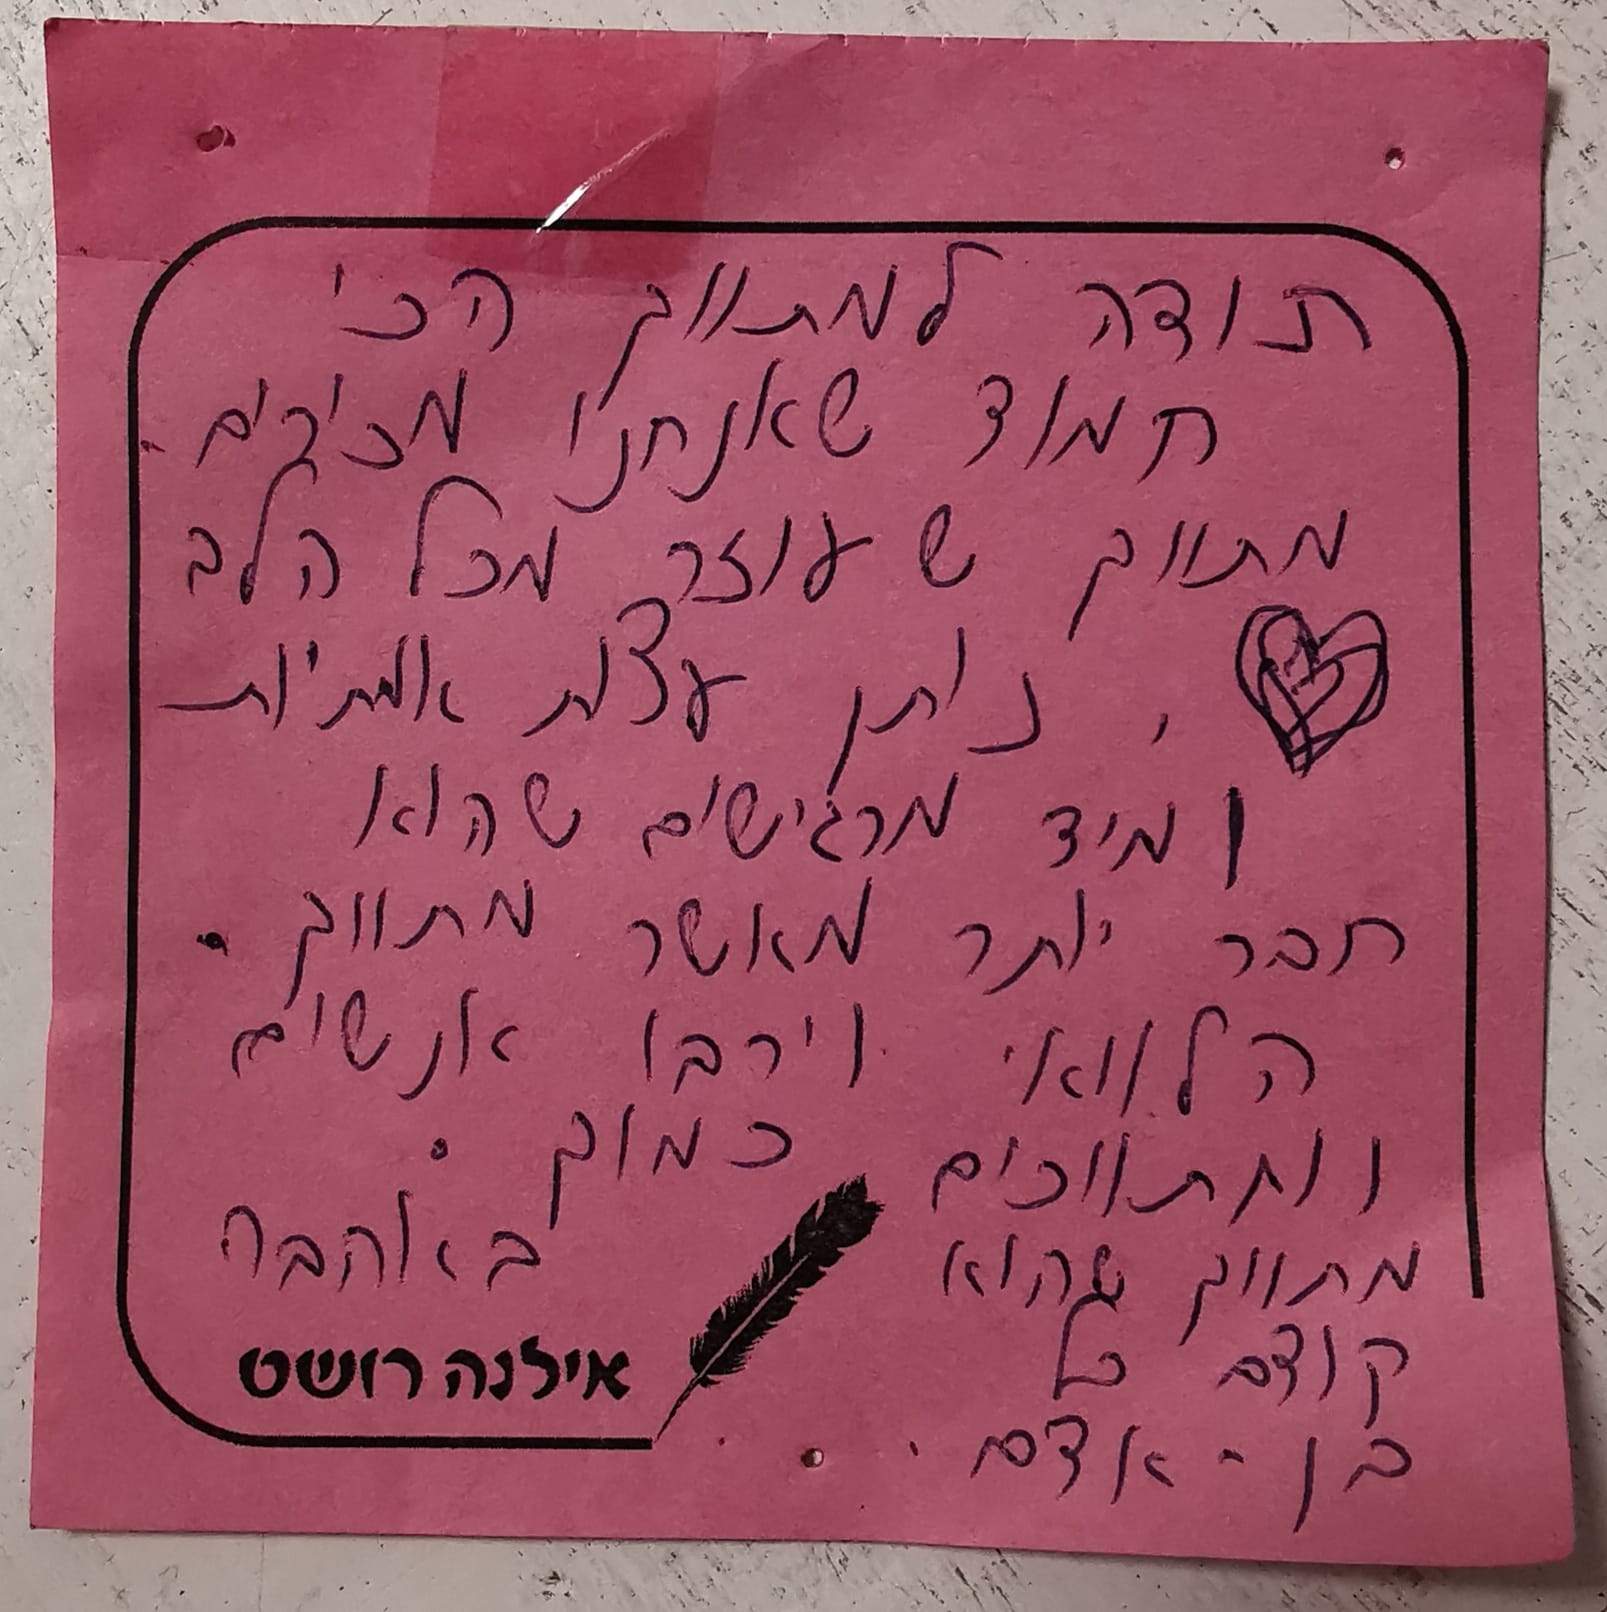 תודה למתווך הכי
חמוד שאנחנו מכירים
מתווך שעוזר מכל הלב
, נותן עצות אמתיות
ומיד מרגישים שהוא
חבר יותר מאשר מתווך.
הלוואי וירבו אנשים
ומתווכים כמוך.
מתווך שהוא
קודם כל
בן-אדם.
באהבה
אילנה רושט